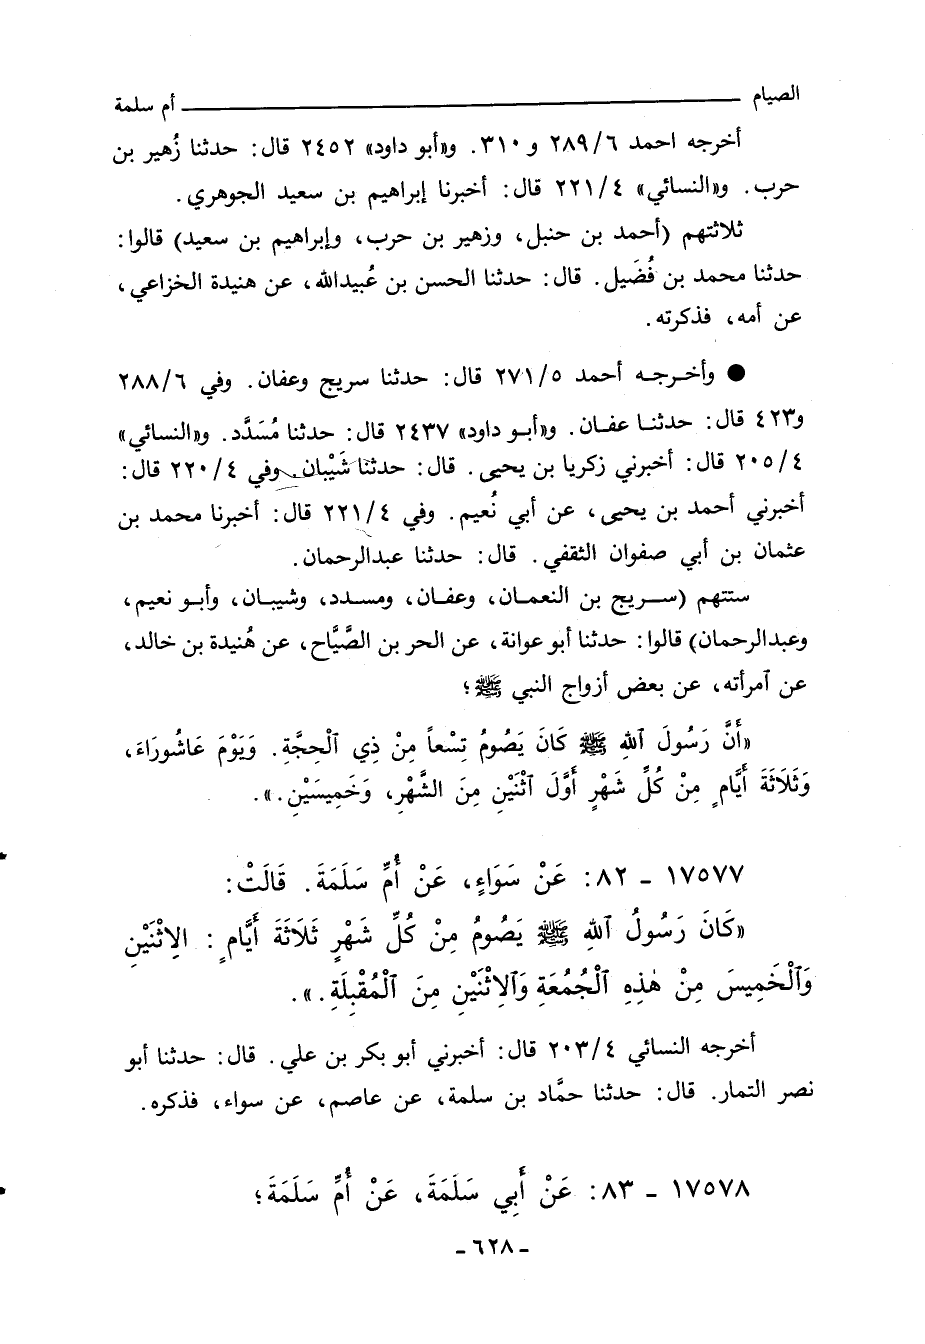 الصيام ــــــ أم سلمة
أخرجه احمد ٢٨٩/٦ و ٣١٠. و«أبو داود» ٢٤٥٢ قال: حدثنا زُهير بن
حرب. و«النسائي» ٢٢١/٤ قال: أخبرنا إبراهيم بن سعيد الجوهري.
ثلاثتهم (أحمد بن حنبل، وزهير بن حرب، وإبراهيم بن سعيد) قالوا:
حدثنا محمد بن فُضَيل. قال: حدثنا الحسن بن عُبيدالله، عن هنيدة الخزاعي،
عن أمه، فذكرته.
● وأخـرجـه أحمد ٢٧١/٥ قال: حدثنا سريج وعفان. وفي ٢٨٨/٦
و٤٢٣ قال: حدثنـا عفـان. و«أبـو داود» ٢٤٣٧ قال: حدثنا مُسَدَّد. و«النسائي»
٢٠٥/٤ قال: أخبرني زكريا بن يحيى. قال: حدثنا شَيْبان. وفي ٢٢٠/٤ قال:
أخبرني أحمد بن يحيى، عن أبي نُعيم. وفي ٢٢١/٤ قال: أخبرنا محمد بن
عثمان بن أبي صفوان الثقفي. قال: حدثنا عبدالرحمان.
ستتهم (سـريج بن النعمـان، وعفـان، ومسـدد، وشيبـان، وأبـو نعيم،
وعبدالرحمان) قالوا: حدثنا أبو عوانة، عن الحر بن الصَّيَّاح، عن هُنيدة بن خالد،
عن ٱمرأته، عن بعض أزواج النبي ﷺ؛
«أَنَّ رَسُولَ ٱللهِ ﷺ كَانَ يَصُومُ تِسْعاً مِنْ ذِي ٱلْحِجَّةِ. وَيَوْمَ عَاشُورَاءَ،
وَثَلَاثَةَ أَيَّامٍ مِنْ كُلِّ شَهْرٍ أَوَّلَ ٱثْنَيْنِ مِنَ الشَّهْرِ، وَخَمِيسَيْنِ.».
١٧٥٧٧ ـ ٨٢: عَنْ سَوَاءٍ، عَنْ أُمِّ سَلَمَةَ. قَالَتْ:
«كَانَ رَسُولُ ٱللهِ ﷺ يَصُومُ مِنْ كُلِّ شَهْرٍ ثَلَاثَةَ أَيَّامٍ: الِاثْنَيْنِ
وَٱلْخَمِيسَ مِنْ هٰذِهِ ٱلْجُمُعَةِ وَٱلِاثْنَيْنِ مِنَ ٱلْمُقْبِلَةِ.».
أخرجه النسائي ٢٠٣/٤ قال: أخبرني أبو بكر بن علي. قال: حدثنا أبو
نصر التمار. قال: حدثنا حمَّاد بن سلمة، عن عاصم، عن سواء، فذكره.
١٧٥٧٨ ـ ٨٣: عَنْ أَبِي سَلَمَةَ، عَنْ أُمِّ سَلَمَةَ؛
ـ ٦٢٨ ـ